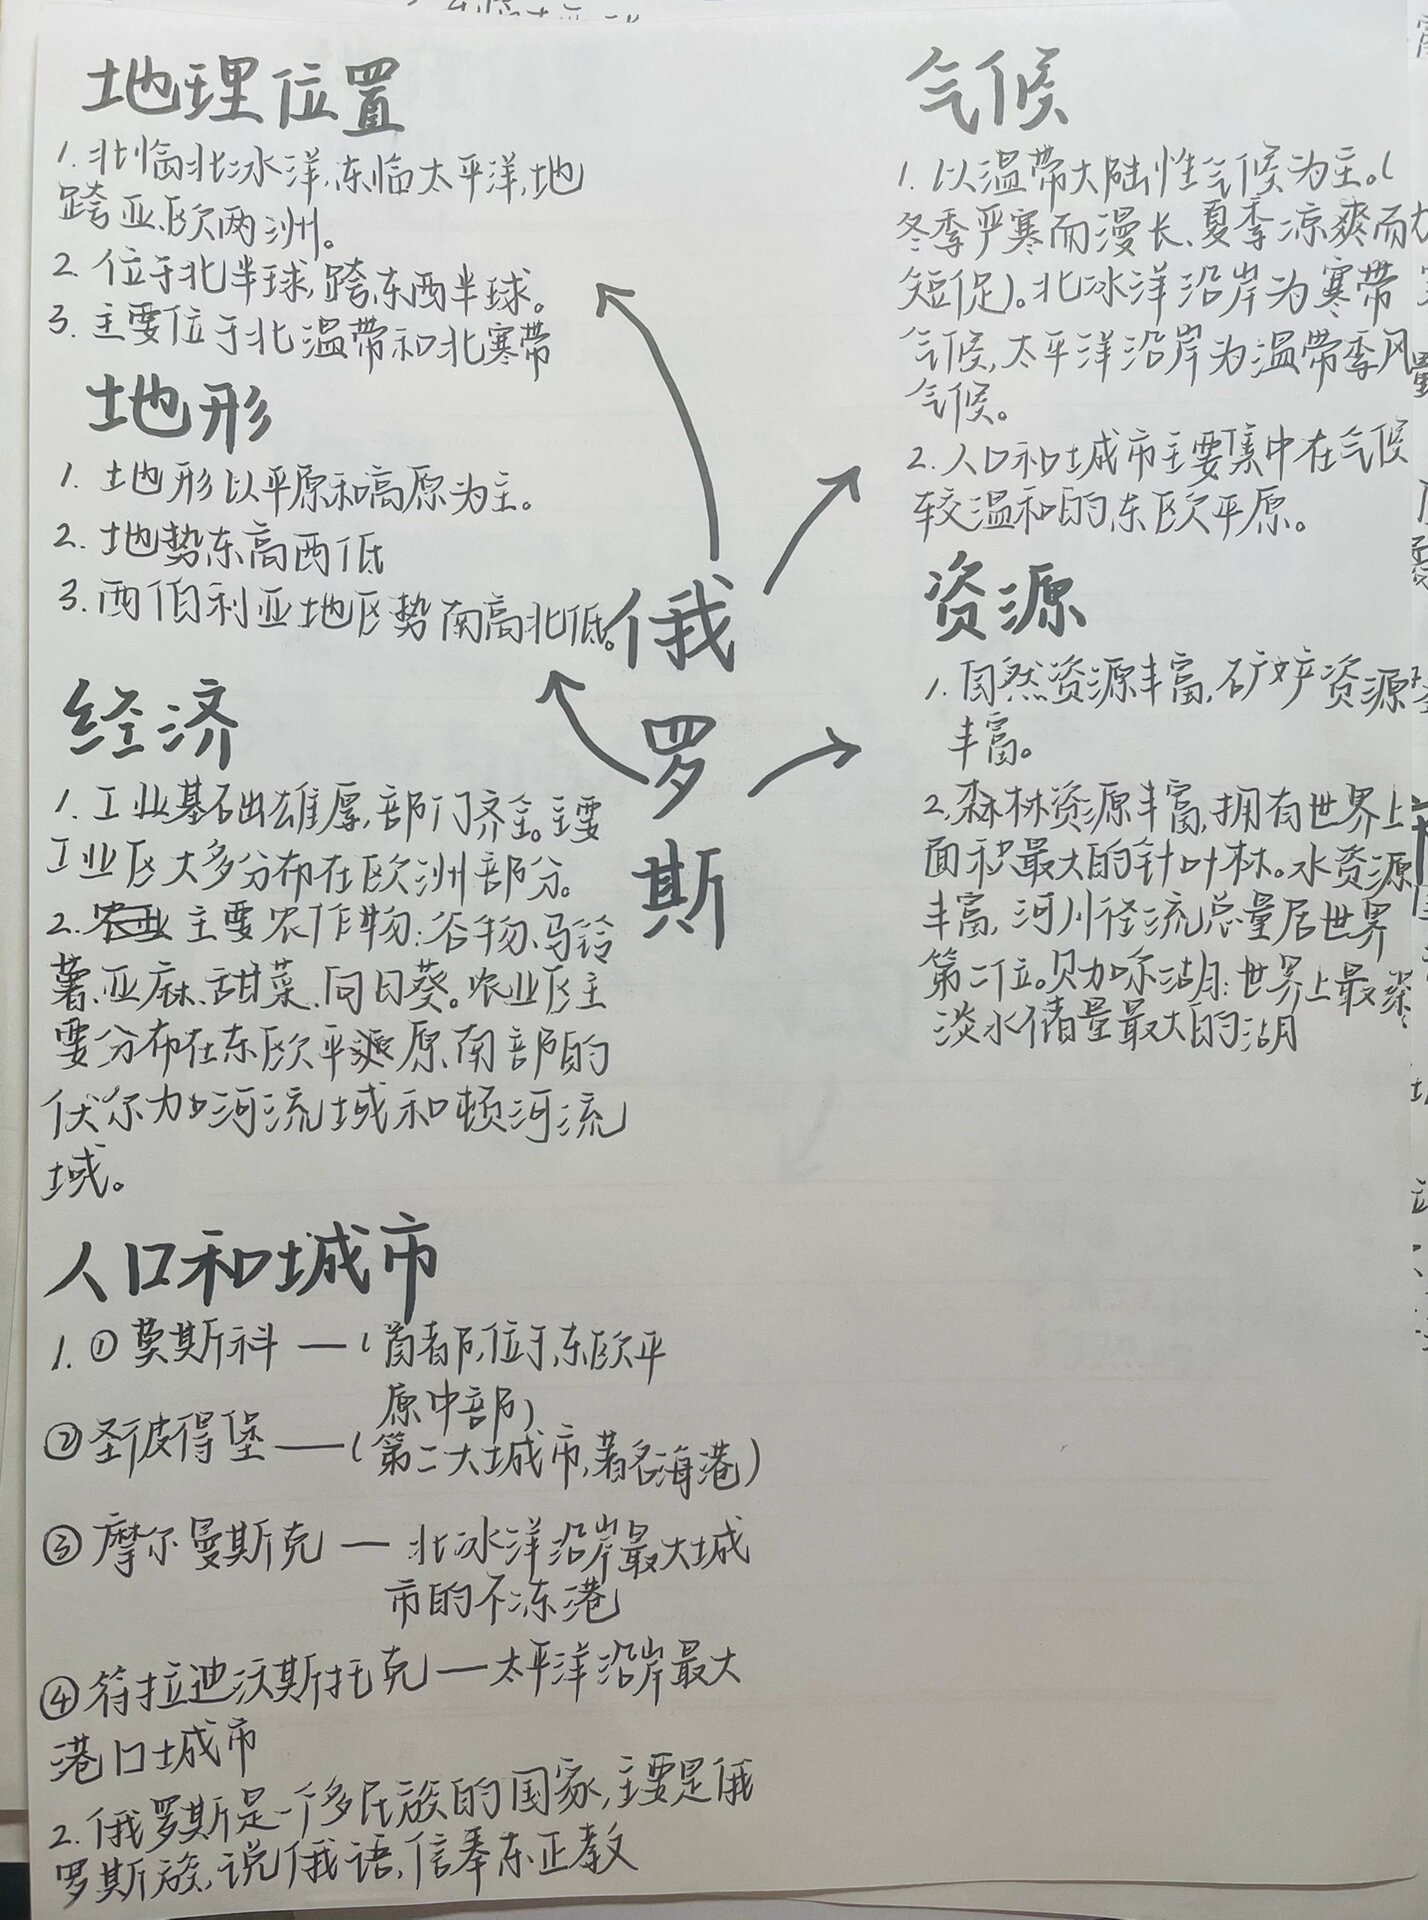 地理位置
1. 北临北冰洋,东临太平洋,地
跨亚、欧两洲。
2. 位于北半球,跨东西半球。
3. 主要位于北温带和北寒带
地形
1. 地形以平原和高原为主。
2. 地势东高西低
3. 西伯利亚地区势南高北低。
经济
1. 工业基础雄厚,部门齐全。主要
工业区大多分布在欧洲部分。
2. 农业 主要农作物:谷物、马铃
薯、亚麻、甜菜、向日葵。农业区主
要分布在东欧平原南部的
伏尔加河流域和顿河流
域。
人口和城市
1. ①莫斯科 — (首都,位于东欧平
原中部)
②圣彼得堡 — (第二大城市,著名海港)
③摩尔曼斯克 — 北冰洋沿岸最大城
市的不冻港
④符拉迪沃斯托克 — 太平洋沿岸最大
港口城市
2. 俄罗斯是一个多民族的国家,主要是俄
罗斯族,说俄语,信奉东正教
俄
罗
斯
气候
1. 以温带大陆性气候为主。(
冬季严寒而漫长、夏季凉爽而
短促)。北冰洋沿岸为寒带
气候,太平洋沿岸为温带季风
气候。
2. 人口和城市主要集中在气候
较温和的东欧平原。
资源
1. 自然资源丰富,矿产资源
丰富。
2. 森林资源丰富,拥有世界上
面积最大的针叶林。水资源
丰富,河川径流总量居世界
第二位。贝加尔湖:世界上最深
淡水储量最大的湖